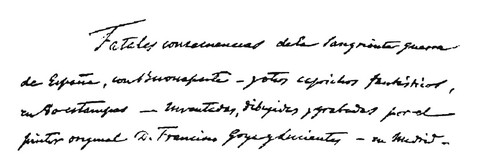 Fatales consecuencias de la sangrienta guerra
de España, con Buonaparte - y otros caprichos fantásticos,
en 80 estampas - inventadas, dibujadas y grabadas por el
pintor original D. Francisco Goya y Lucientes - en Madrid -